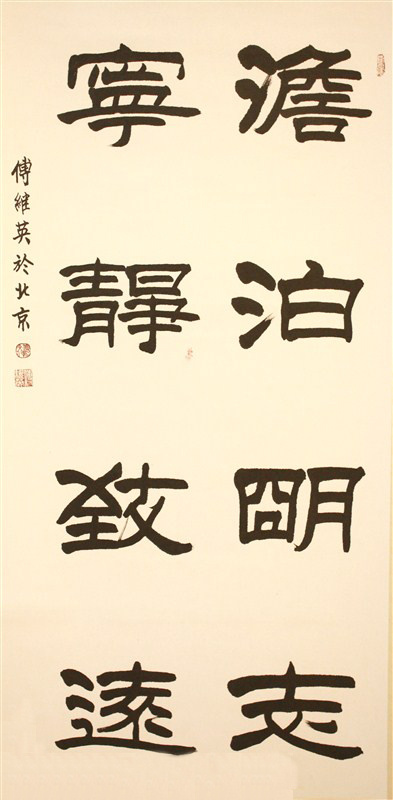 澹泊朙志
寧靜致遠
傅維英於北京